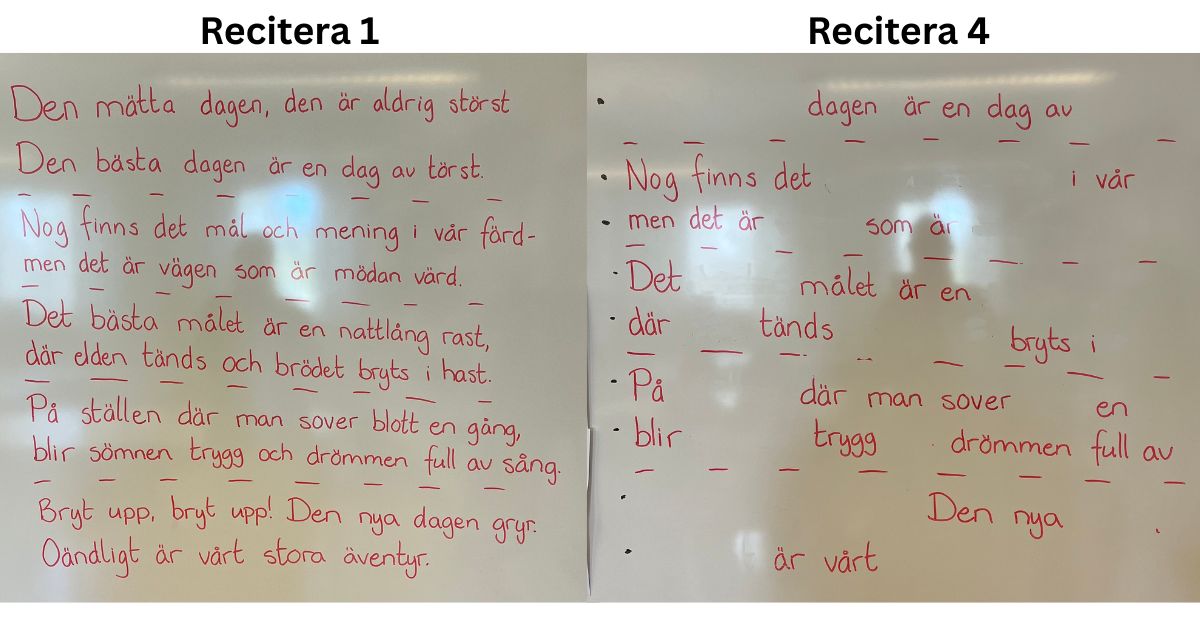 Recitera 1
Den mätta dagen, den är aldrig störst
Den bästa dagen är en dag av törst.
Nog finns det mål och mening i vår färd-
men det är vägen som är mödan värd.
Det bästa målet är en nattlång rast,
där elden tänds och brödet bryts i hast.
På ställen där man sover blott en gång,
blir sömnen trygg och drömmen full av sång.
Bryt upp, bryt upp! Den nya dagen gryr.
Oändligt är vårt stora äventyr.
Recitera 4
dagen är en dag av
Nog finns det i vår
men det är som är
Det målet är en
där tänds bryts i
På där man sover en
blir trygg drömmen full av
Den nya
är vårt